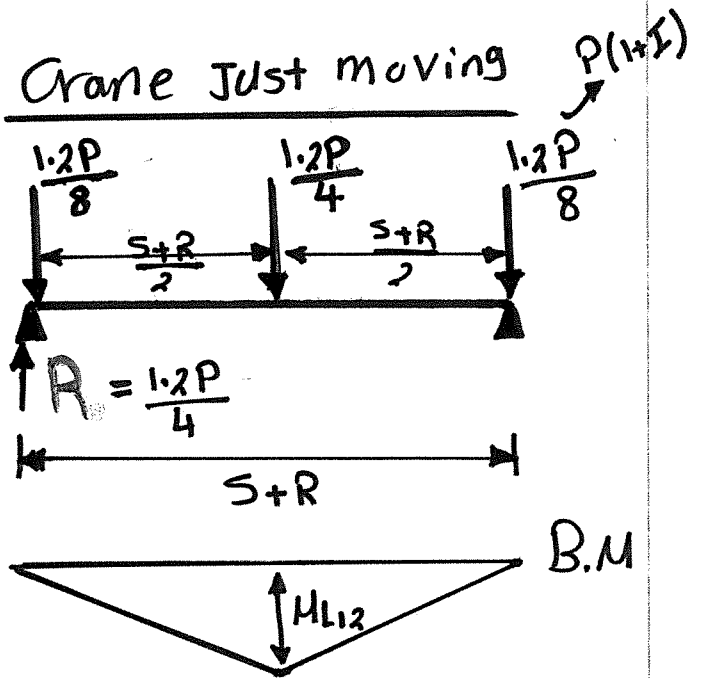 Crane Just moving
P(1+I)
1.2P/8
1.2P/4
1.2P/8
S+R/2
S+R/2
R = 1.2P/4
S+R
B.M
ML12